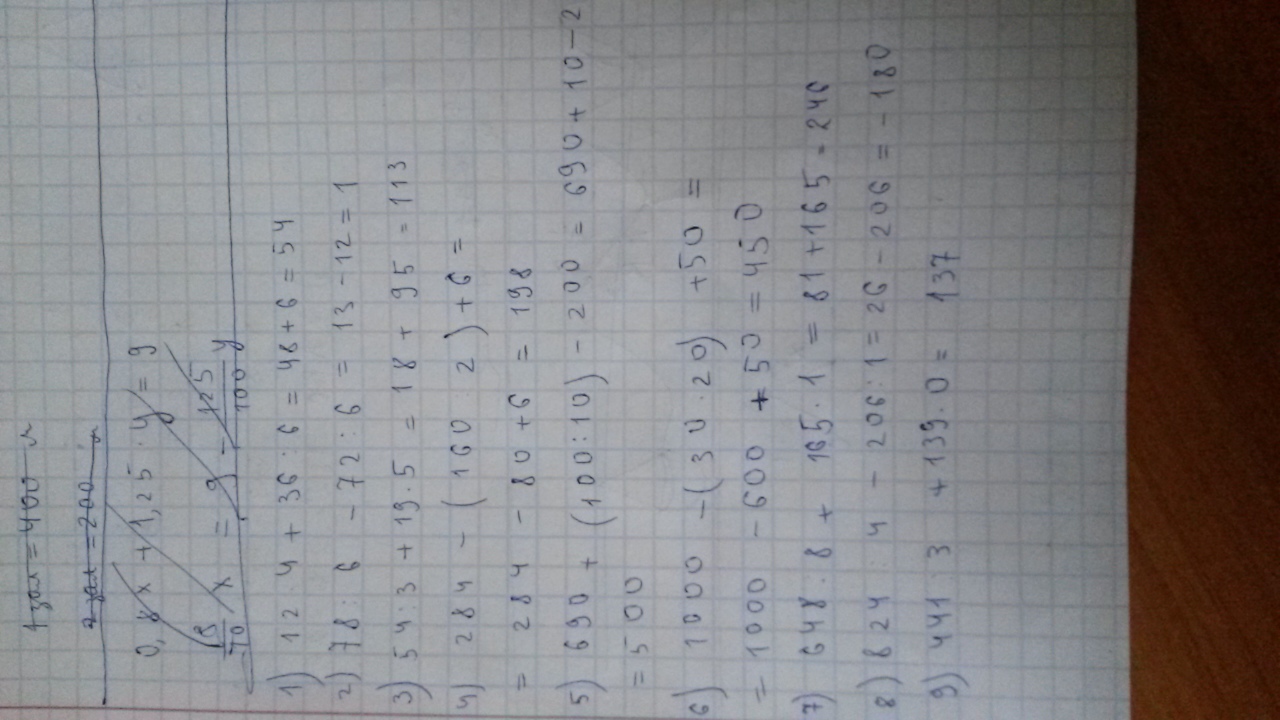 1 зал = 400 л
2 зал = 200 л
0,8x + 1,25 · y = 9
8/10 x = 9 - 125/100 y
1) 12 · 4 + 36 : 6 = 48 + 6 = 54
2) 78 : 6 - 72 : 6 = 13 - 12 = 1
3) 54 : 3 + 19 · 5 = 18 + 95 = 113
4) 284 - (160 : 2) + 6 =
= 284 - 80 + 6 = 198
5) 690 + (100 : 10) - 200 = 690 + 10 - 2
= 500
6) 1000 - (30 · 20) + 50 =
= 1000 - 600 + 50 = 450
7) 648 : 8 + 165 · 1 = 81 + 165 = 246
8) 824 : 4 - 206 : 1 = 26 - 206 = - 180
9) 441 : 3 + 139 · 0 = 137